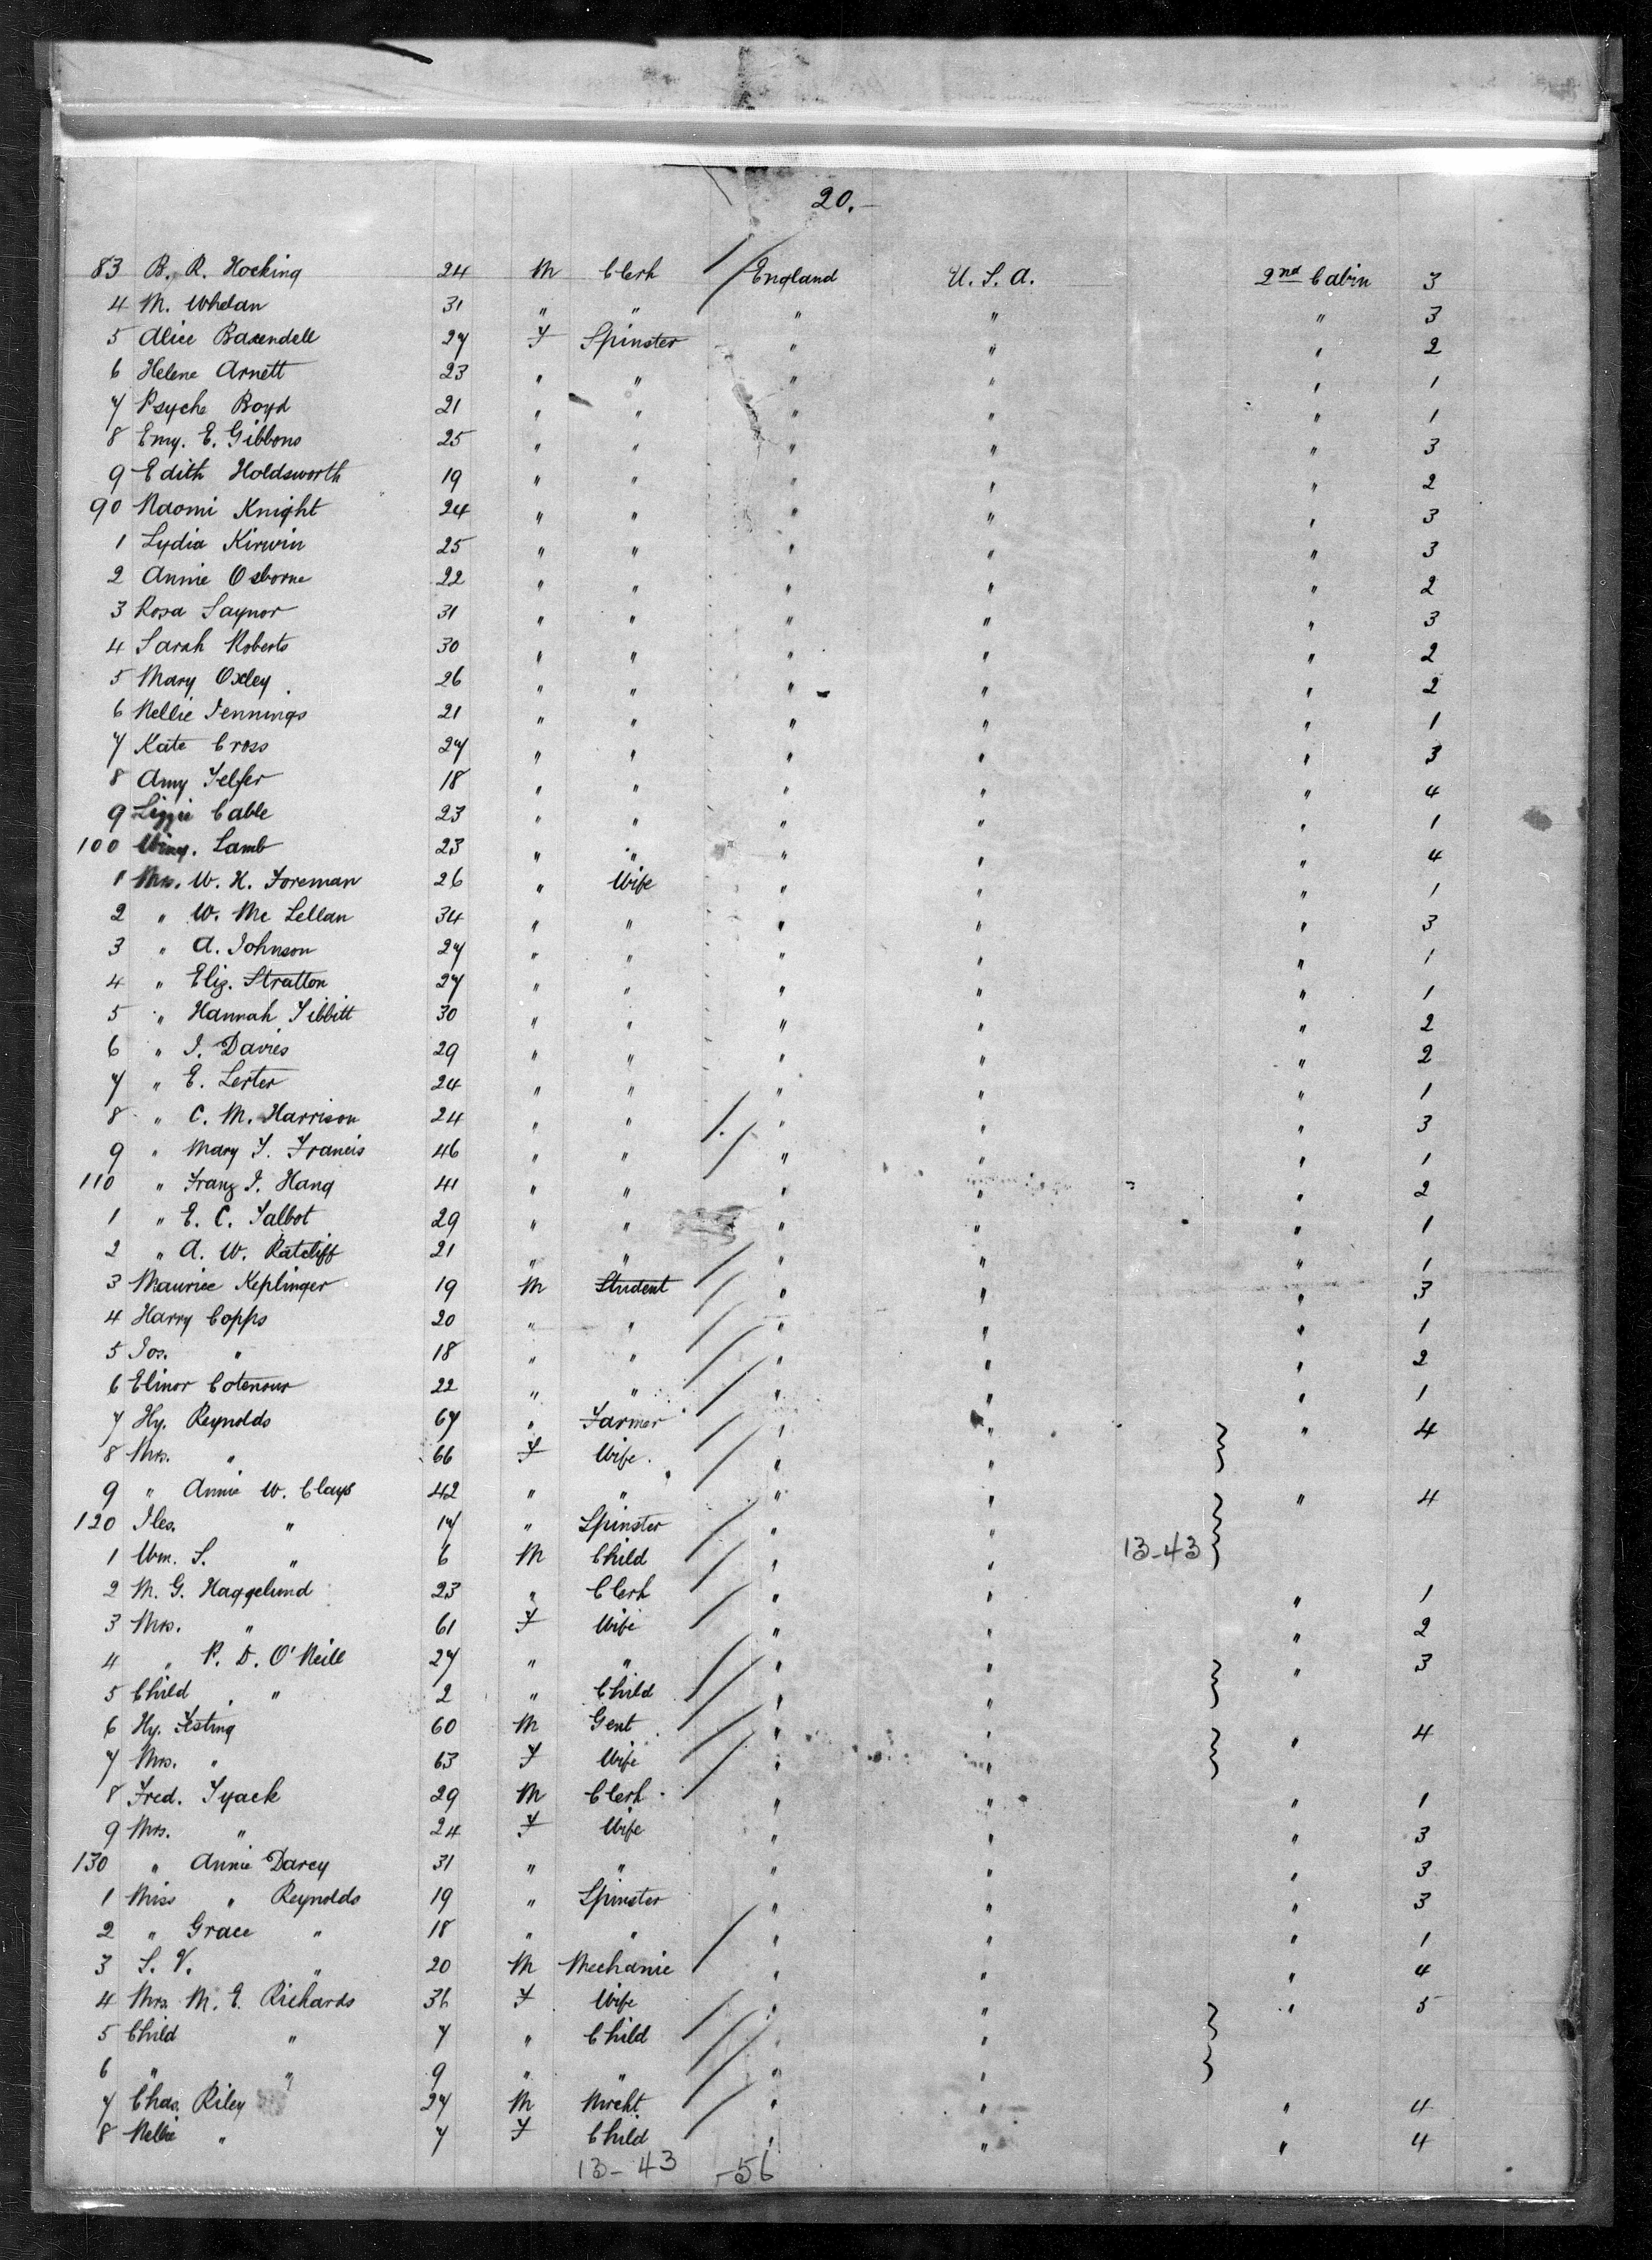 20.
83 B. R. Hocking 24 M Clerk England U. S. A. 2nd Cabin 3
4 M. Whelan 31 " " " " " 3
5 Alice Baxendell 27 F Spinster " " " 2
6 Helene Arnett 23 " " " " " 1
7 Psyche Boyd 21 " " " " " 1
8 Emy. E. Gibbons 25 " " " " " 3
9 Edith Holdsworth 19 " " " " " 2
90 Naomi Knight 24 " " " " " 3
1 Lydia Kirwin 25 " " " " " 3
2 Annie Osborne 22 " " " " " 2
3 Rosa Saynor 31 " " " " " 3
4 Sarah Roberts 30 " " " " " 2
5 Mary Oxley 26 " " " " " 2
6 Nellie Jennings 21 " " " " " 1
7 Kate Cross 27 " " " " " 3
8 Amy Telfer 18 " " " " " 4
9 Lizzie Cable 23 " " " " " 1
100 Lamb 23 " " " " " 4
1 Mrs. W. H. Foreman 26 " Wife " " " 1
2 " W. Mc Lellan 34 " " " " " 3
3 " A. Johnson 27 " " " " " 1
4 " Eliz. Stratton 27 " " " " " 1
5 " Hannah Tibbitt 30 " " " " " 2
6 " J. Davies 29 " " " " " 2
7 " E. Lester 24 " " " " " 1
8 " C. M. Harrison 24 " " " " " 3
9 " Mary T. Francis 46 " " " " " 1
110 " Franz J. Hang 41 " " " " " 2
1 " E. C. Talbot 29 " " " " " 1
2 " A. W. Ratcliff 21 " " " " " 1
3 Maurice Keplinger 19 M Student " " " 3
4 Harry Copps 20 " " " " " 1
5 Jos. " 18 " " " " " 2
6 Elinor Cotenour 22 " " " " " 1
7 Hy. Reynolds 67 " Farmer " " " 4
8 Mrs. " 66 F Wife " "
9 " Annie W. Clays 42 " " " " " 4
120 " 17 " Spinster " "
1 Wm. S. " 6 M Child " " 13-43
2 M. G. Haggelund 23 " Clerk " " " 1
3 Mrs. " 61 F Wife " " " 2
4 " P. D. O'Neill 27 " " " " " 3
5 Child " 2 " Child " "
6 Hy. Testing 60 M Gent " " " 4
7 Mrs. " 63 F Wife " "
8 Fred. Tyack 29 M Clerk " " " 1
9 Mrs. " 24 F Wife " " " 3
130 " Annie Darcy 31 " " " " " 3
1 Miss " Reynolds 19 " Spinster " " " 3
2 " Grace " 18 " " " " " 1
3 S. V. " 20 M Mechanic " " " 4
4 Mrs. M. E. Richards 36 F Wife " " " 5
5 Child " 7 " Child " "
6 " " 9 " " " "
7 Chas. Riley 27 M Mrcht. " " " 4
8 Nellie " 7 F Child " " " 4
13-43 -56